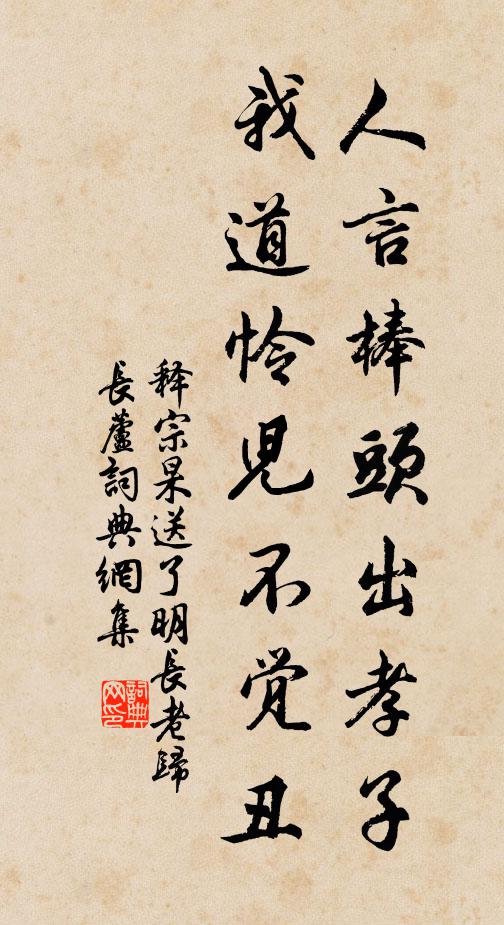 人言棒頭出孝子
我道怜児不觉丑
释宗杲送了明長老歸
長蘆詞典網集
詞典
网印